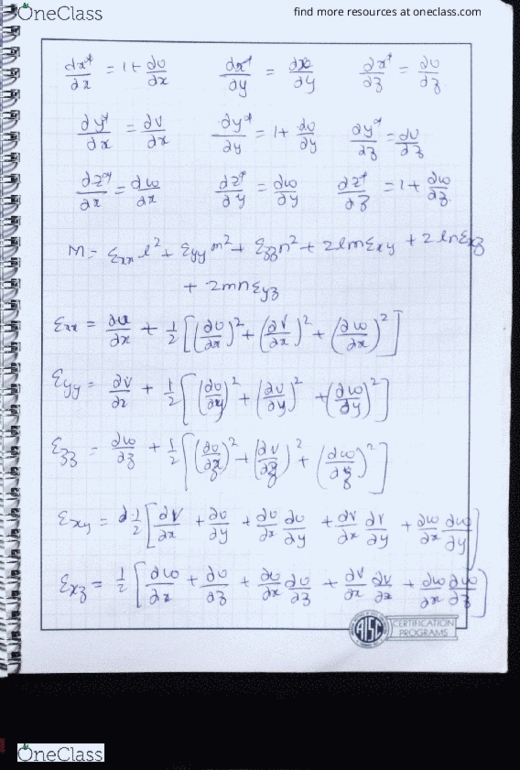 OneClass
find more resources at oneclass.com
∂x*/∂x = 1 + ∂u/∂x    ∂x*/∂y = ∂u/∂y    ∂x*/∂z = ∂u/∂z
∂y*/∂x = ∂v/∂x    ∂y*/∂y = 1 + ∂v/∂y    ∂y*/∂z = ∂v/∂z
∂z*/∂x = ∂w/∂x    ∂z*/∂y = ∂w/∂y    ∂z*/∂z = 1 + ∂w/∂z
M = εxx l² + εyy m² + εzz n² + 2lm εxy + 2ln εxz
+ 2mn εyz
εxx = ∂u/∂x + 1/2 [(∂u/∂x)² + (∂v/∂x)² + (∂w/∂x)²]
εyy = ∂v/∂x + 1/2 [(∂u/∂y)² + (∂v/∂y)² + (∂w/∂y)²]
εzz = ∂w/∂z + 1/2 [(∂u/∂z)² + (∂v/∂z)² + (∂w/∂z)²]
εxy = 1/2 [∂v/∂x + ∂u/∂y + ∂u/∂x ∂u/∂y + ∂v/∂x ∂v/∂y + ∂w/∂x ∂w/∂y]
εxz = 1/2 [∂w/∂x + ∂u/∂z + ∂u/∂x ∂u/∂z + ∂v/∂x ∂v/∂z + ∂w/∂x ∂w/∂z]
AISC CERTIFICATION
PROGRAMS
OneClass